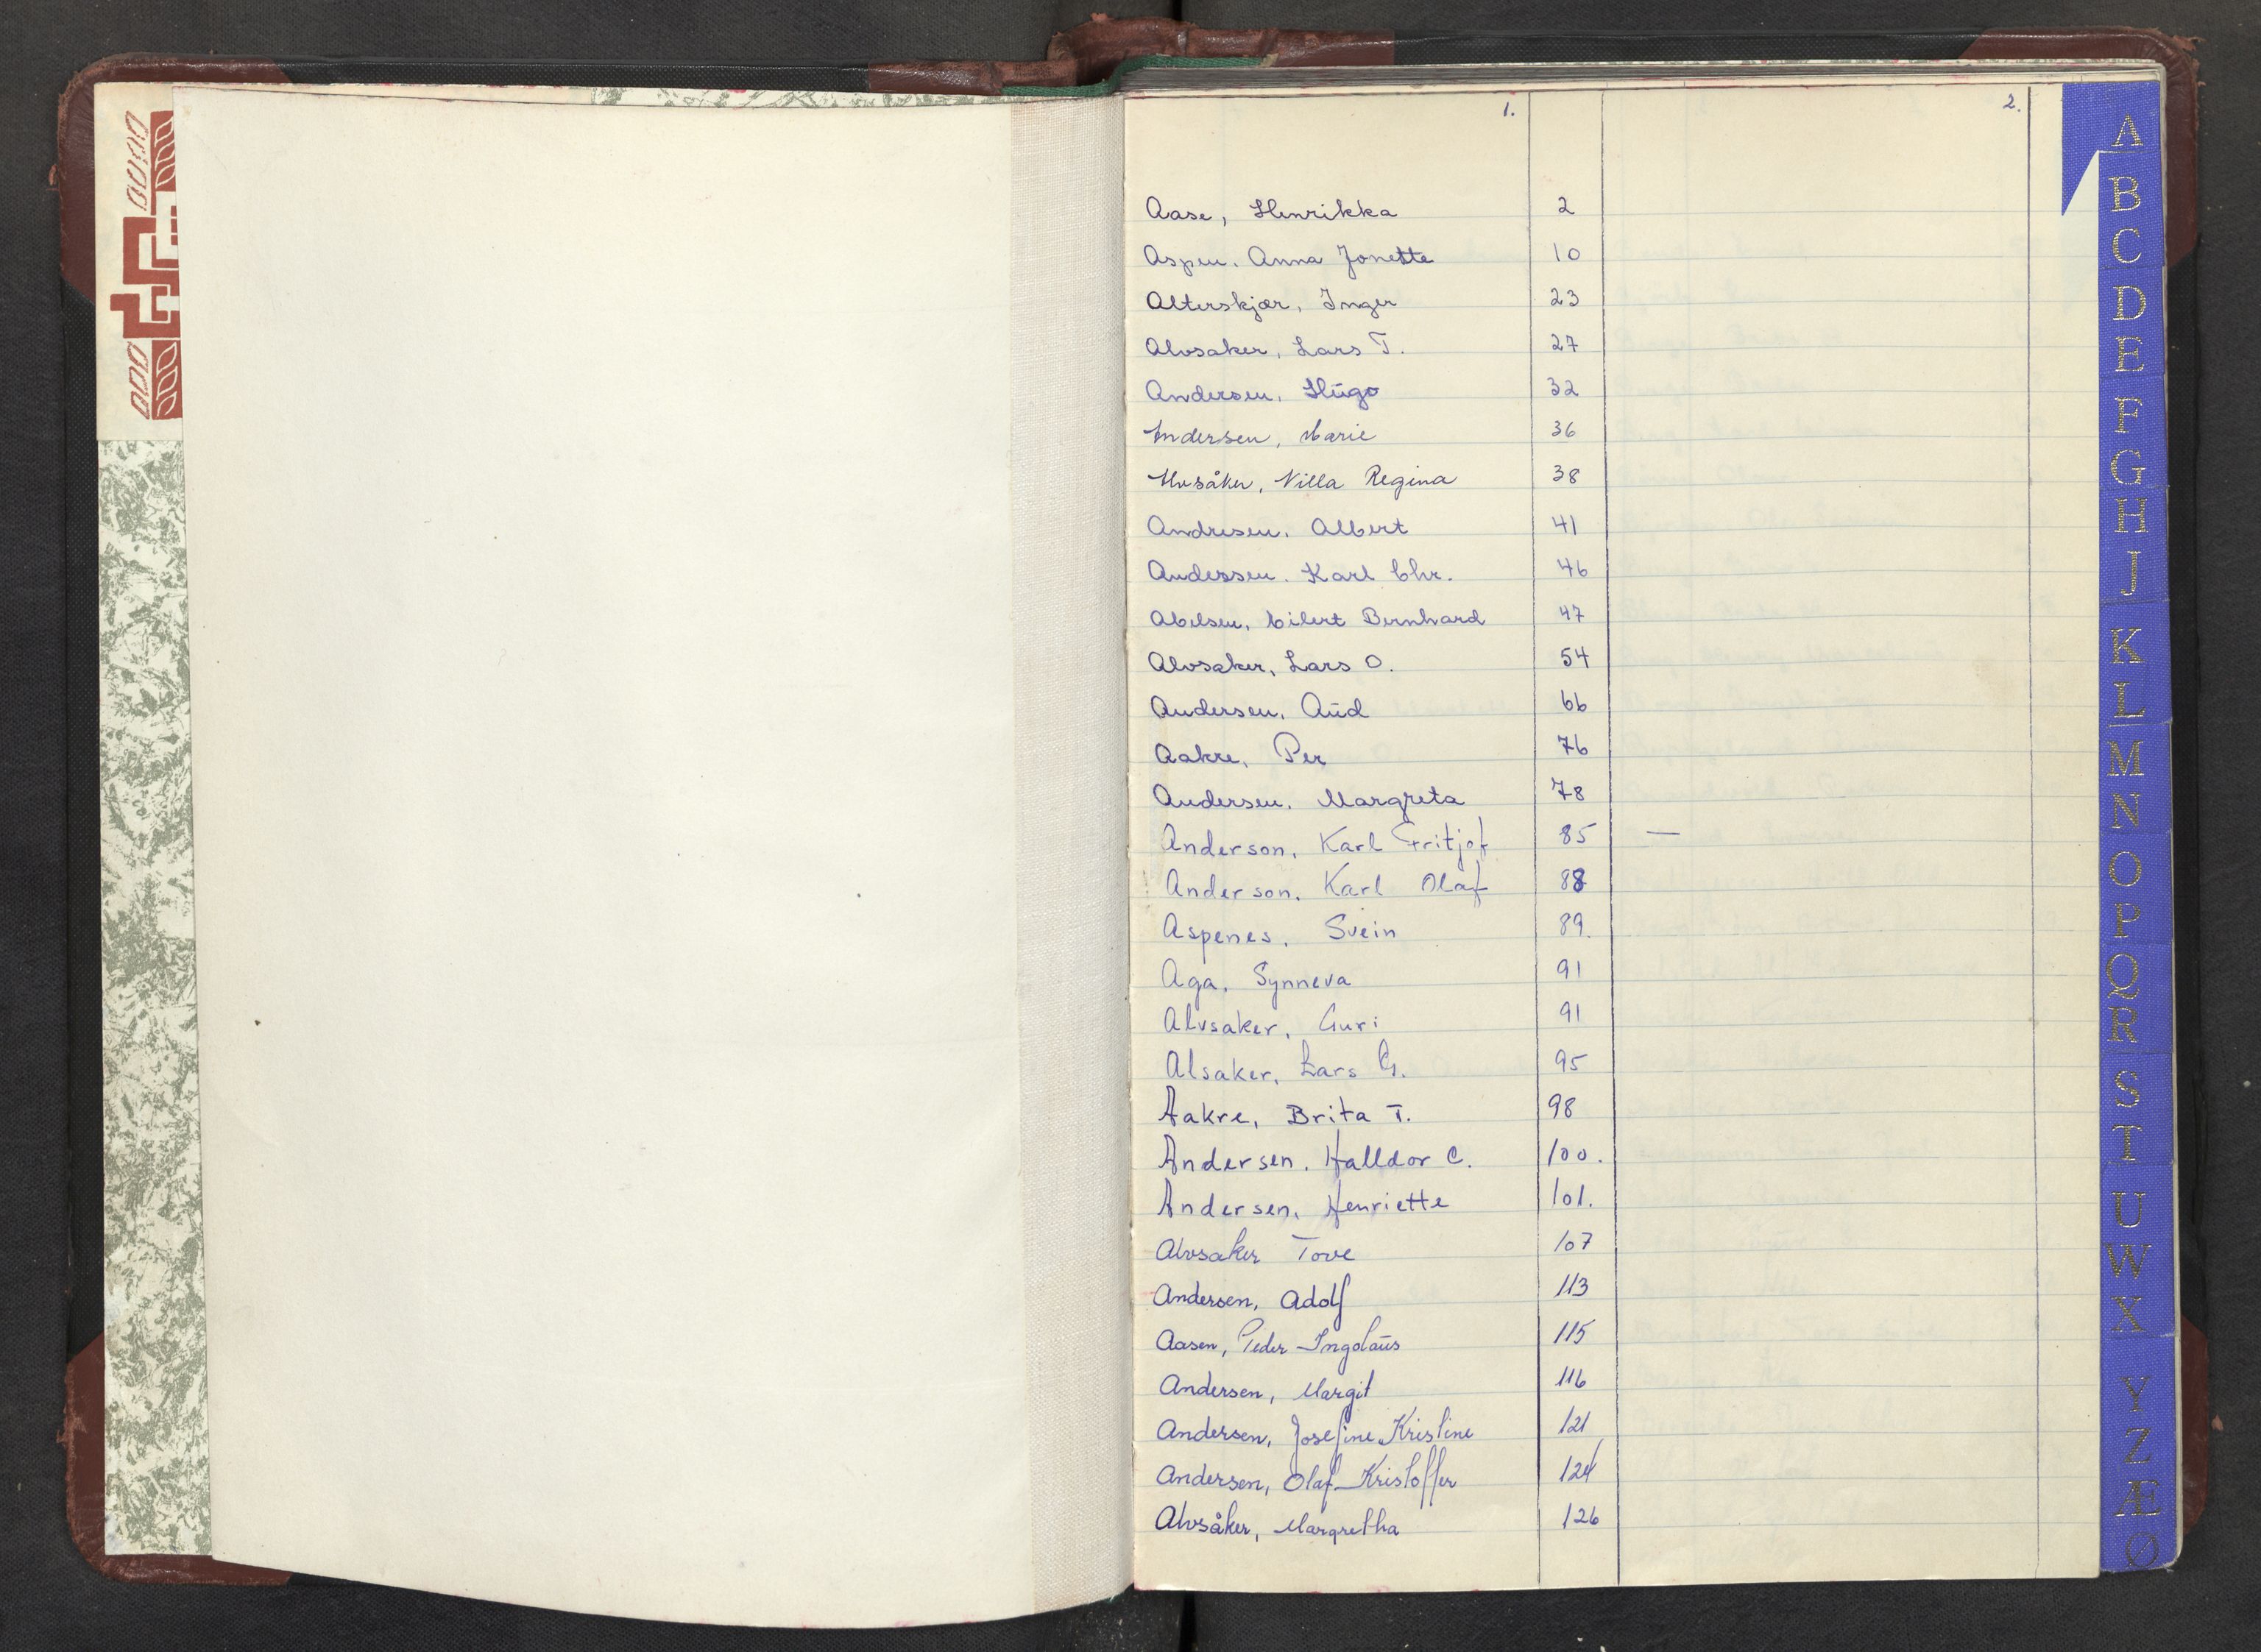 1. 2.
Aase, Henrikka 2
Aspen. Anna Jonette 10
Alterskjær, Inger 23
Alvsaker, Lars T. 27
Andersen. Hugo 32
Andersen, Marie 36
Alvsåker, Villa Regina 38
Andresen. Albert 41
Anderssen. Karl Chr. 46
Abelsen, Eilert Bernhard 47
Alvsaker, Lars O. 54
Andersen, Aud 66
Aakre, Per 76
Andersen. Margreta 78
Anderson, Karl Fritjof 85 —
Anderson. Karl Olaf 88
Aspenes, Svein 89.
Aga. Synneva 91
Alvsaker, Guri 91
Alsaker, Lars G. 95
Aakre, Brita T. 98
Andersen. Halldor C. 100.
Andersen, Henriette 101.
Alvsaker Tove 107
Andersen, Adolf 113
Aasen, Peder Ingolaus 115
Andersen, Margit 116
Andersen, Josefine Kristine 121
Andersen, Olaf Kristoffer 124
Alvsåker, Margretha 126
A
B
C
D
E
F
G
H
J
K
L
M
N
O
P
Q
R
S
T
U
W
X
Y
Z
Æ
Ø